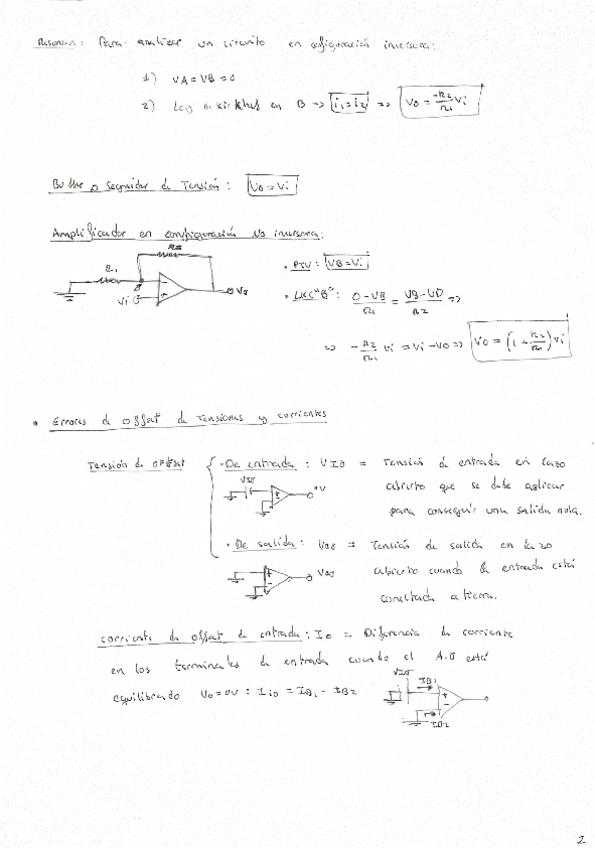 Resumen: Para analizar un circuito en configuración inversora:
1) VA = VB = 0
2) Ley de Kirchhof en B => i1 = i2 => Vo = -R2/R1 Vi
Buffer o seguidor de Tensión: Vo = Vi
Amplificador en configuración No inversora:
R2
R1
Vi
Vo
• PTV: VB = Vi
• LKC "B": 0-VB/R1 = VB-VO/R2 =>
=> -R2/R1 Vi = Vi - Vo => Vo = (1 + R2/R1) Vi
• Errores de offset de tensiones y corrientes
Tensión de offset
• De entrada: VIO = Tensión de entrada en lazo
abierto que se debe aplicar
para conseguir una salida nula.
VIO
• De salida: Voo = Tensión de salida en lazo
abierto cuando la entrada está
conectada a tierra.
Corriente de offset de entrada: Io = Diferencia de corriente
en los terminales de entrada cuando el A.O está
equilibrado Vo = 0V : IiO = IB1 - IB2
VIO
IB1
IB2
2